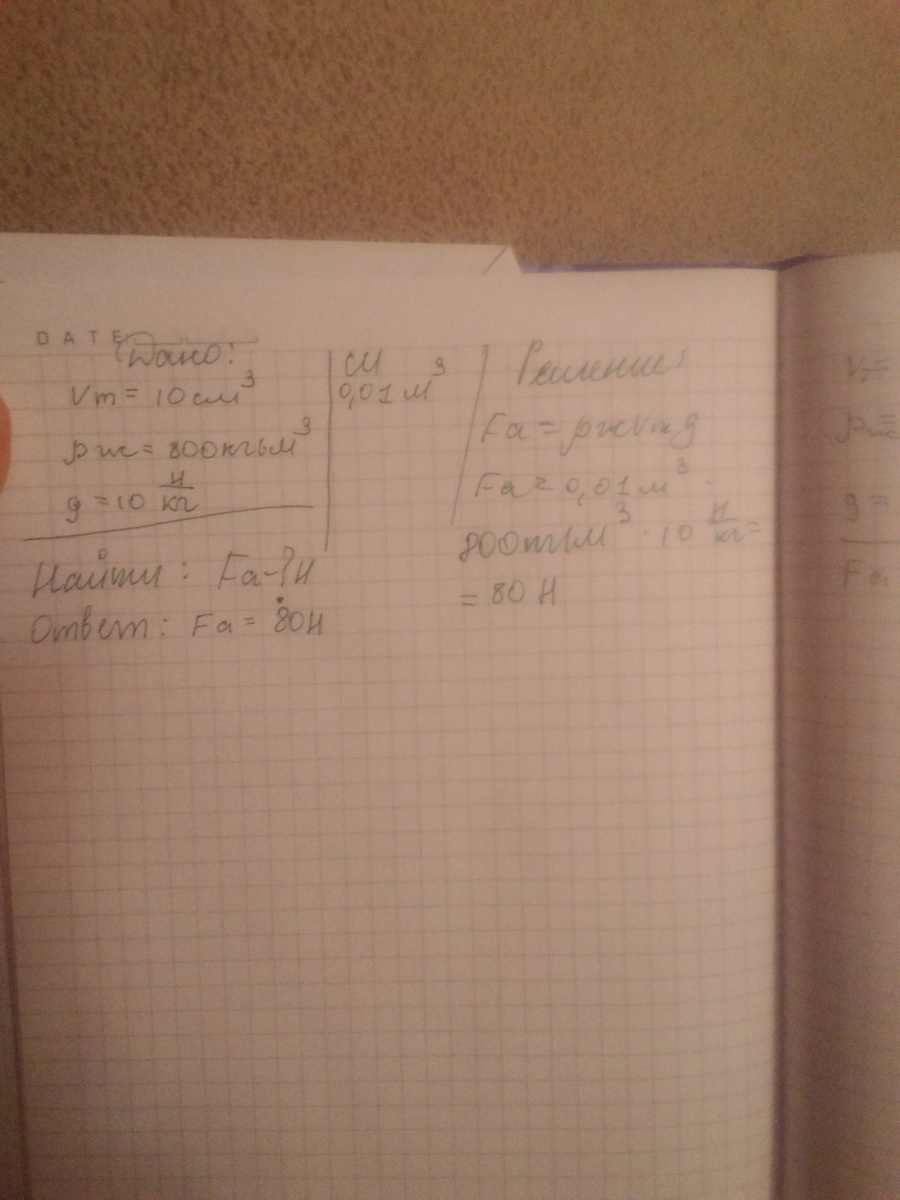 DATE
Дано:
Vт = 10 см³
ρж = 800кг\м³
g = 10 Н/кг
СИ
0,01 м³
Решение:
Fa = ρжVтg
Fa = 0,01 м³ ·
800кг\м³ · 10 Н/кг =
= 80 Н
Найти: Fa-? Н
Ответ: Fa = 80Н
Vт =
ρж =
g =
Fa